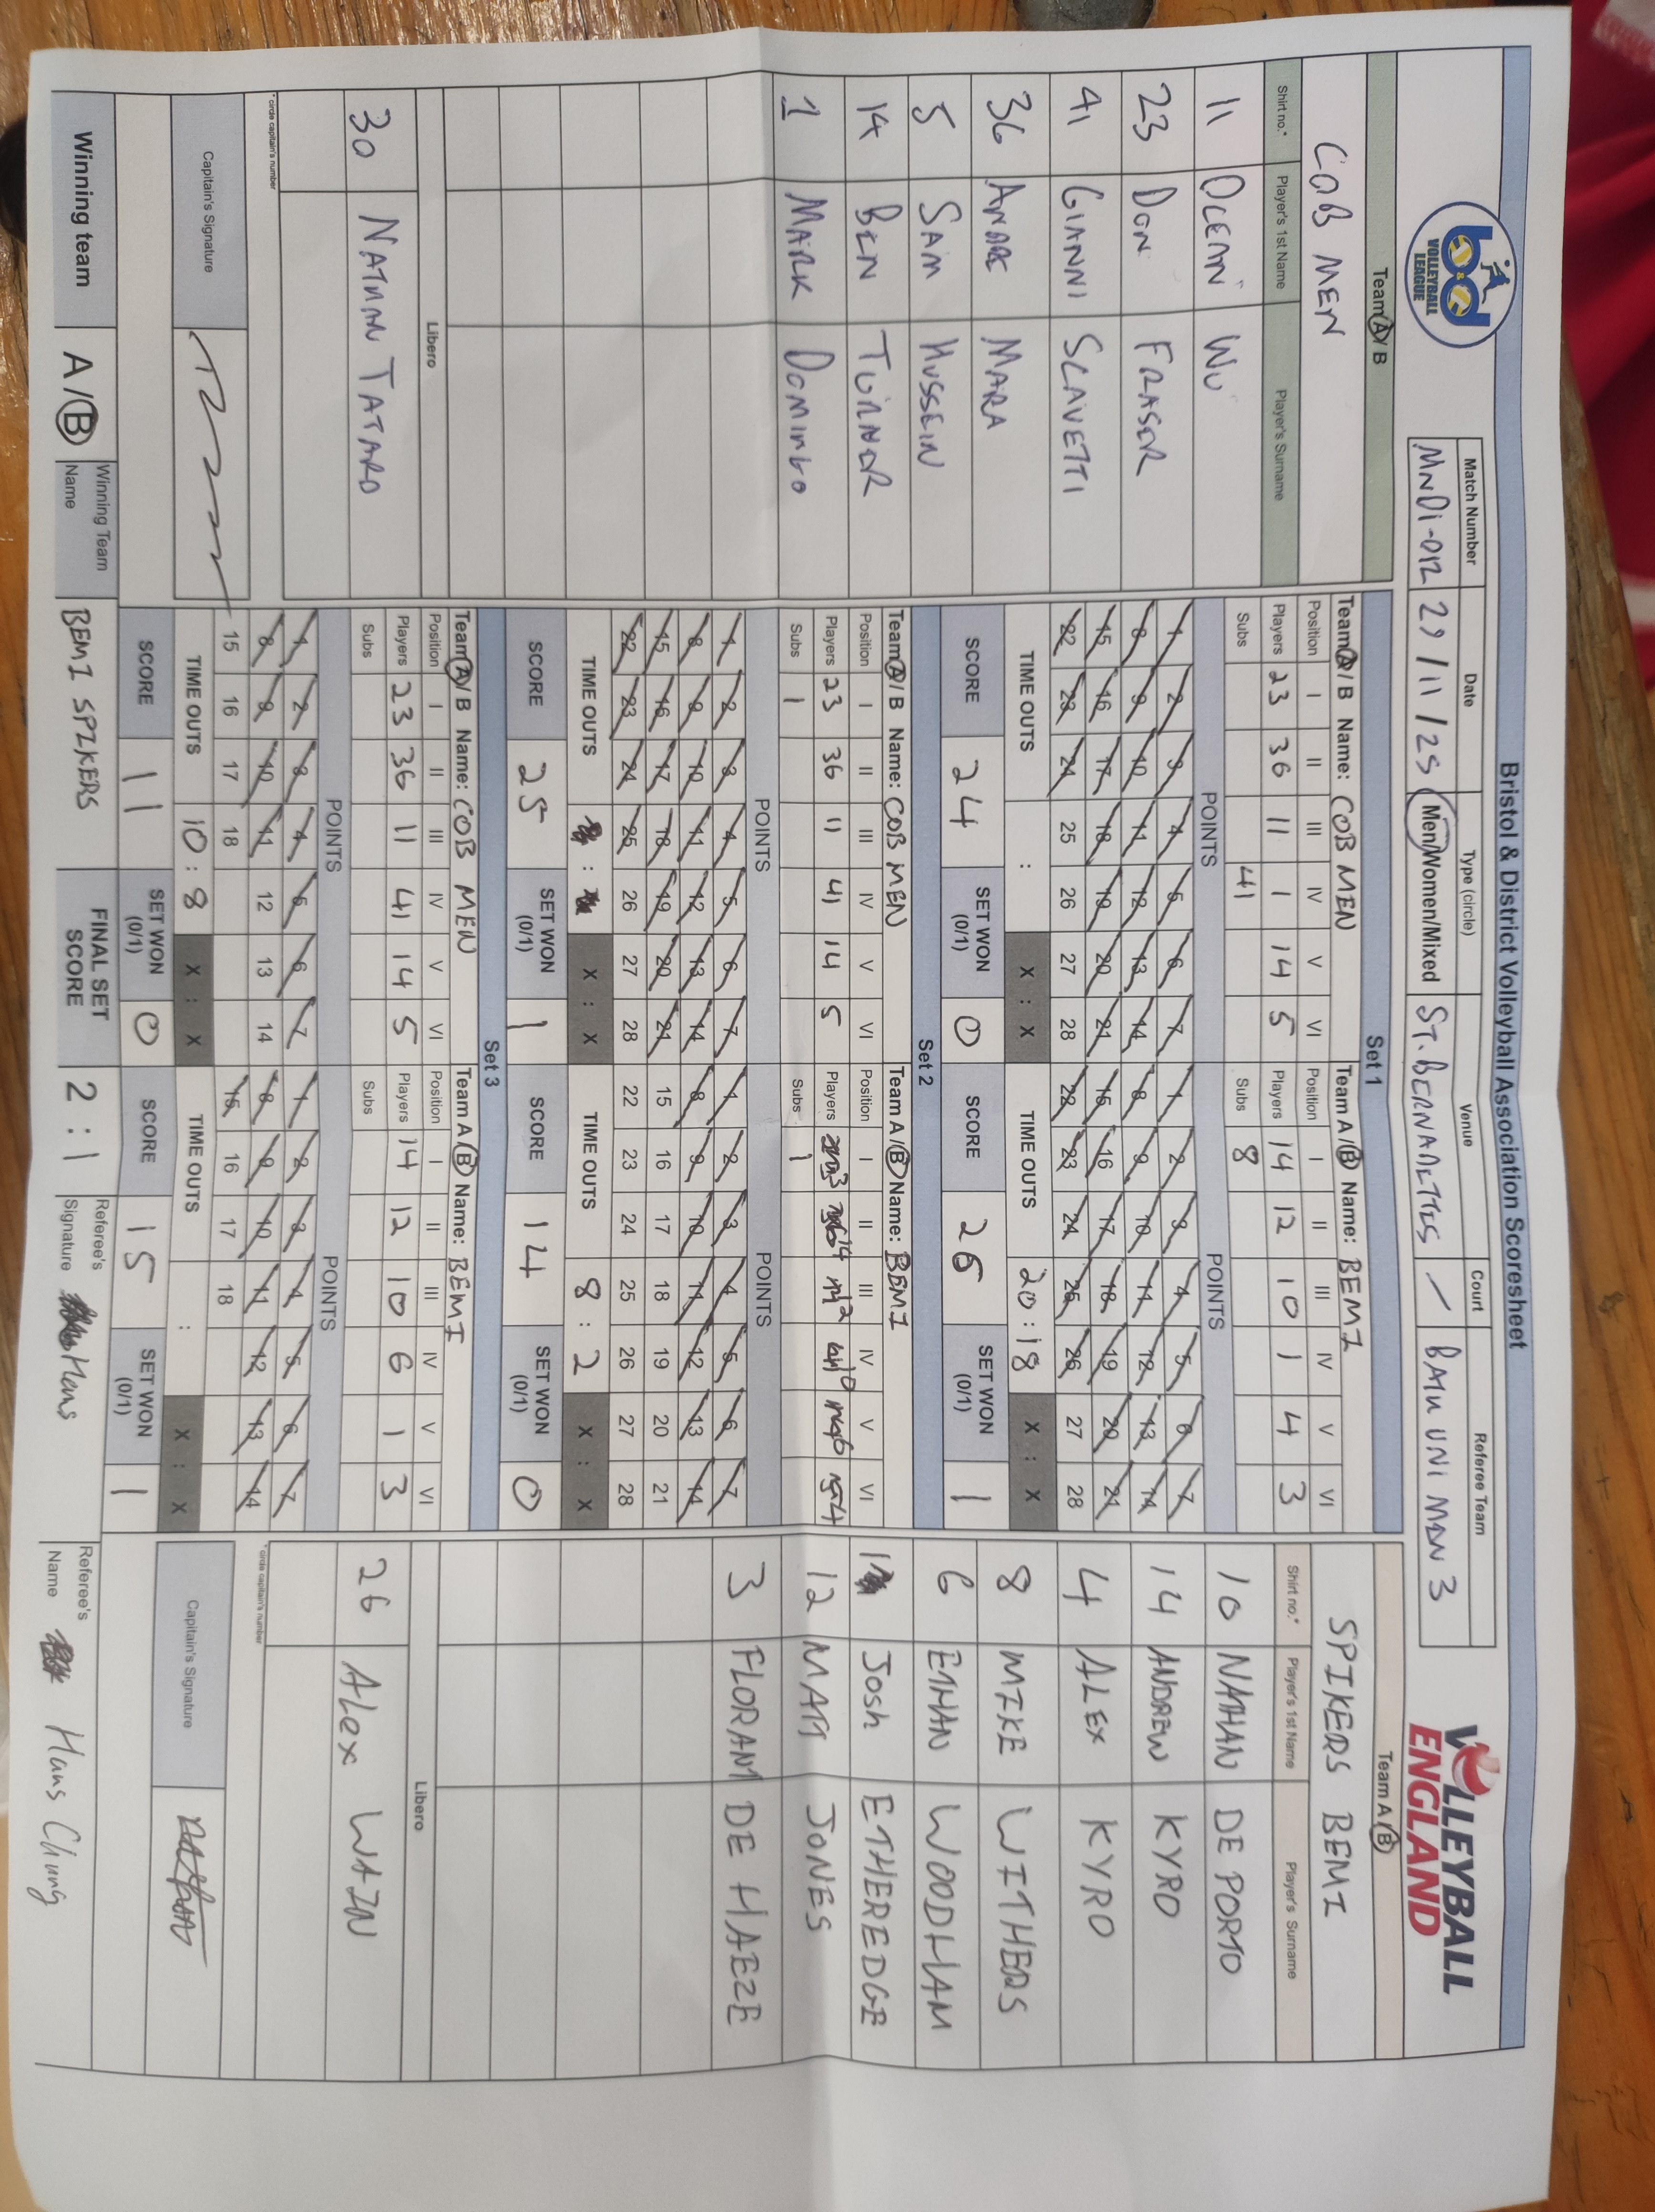 Bristol & District Volleyball Association Scoresheet
b&d VOLLEYBALL LEAGUE
Match Number Date Type (circle) Venue Court Referee Team
MND1-012 29/11/25 Men/Women/Mixed ST. BERNADETTES / BATH UNI MEN 3
VOLLEYBALL ENGLAND
Team A / B
COB MEN
Shirt no.* Player's 1st Name Player's Surname
11 OCEAN WU
23 DON FRASER
41 GIANNI SCAVETTI
36 ANDRE MARA
5 SAM HUSSEIN
14 BEN TURNER
1 MARK DOMINGO
Libero
30 NATHAN TATARD
* circle captain's number
Capitain's Signature
Set 1
Team A / B Name: COB MEN
Position I II III IV V VI
Players 23 36 11 1 14 5
Subs 41
POINTS
1 2 3 4 5 6 7
8 9 10 11 12 13 14
15 16 17 18 19 20 21
22 23 24 25 26 27 28
TIME OUTS : X : X
SCORE 24 SET WON (0/1) 0
Team A / B Name: BEMI
Position I II III IV V VI
Players 14 12 10 1 4 3
Subs 8
POINTS
1 2 3 4 5 6 7
8 9 10 11 12 13 14
15 16 17 18 19 20 21
22 23 24 25 26 27 28
TIME OUTS 20 : 18 X : X
SCORE 26 SET WON (0/1) 1
Set 2
Team A / B Name: COB MEN
Position I II III IV V VI
Players 23 36 11 41 14 5
Subs 1
POINTS
1 2 3 4 5 6 7
8 9 10 11 12 13 14
15 16 17 18 19 20 21
22 23 24 25 26 27 28
TIME OUTS : X : X
SCORE 25 SET WON (0/1) 1
Team A / B Name: BEMI
Position I II III IV V VI
Players 3 14 12 10 6 4
Subs 1
POINTS
1 2 3 4 5 6 7
8 9 10 11 12 13 14
15 16 17 18 19 20 21
22 23 24 25 26 27 28
TIME OUTS 8 : 2 X : X
SCORE 14 SET WON (0/1) 0
Set 3
Team A / B Name: COB MEN
Position I II III IV V VI
Players 23 36 11 41 14 5
Subs
POINTS
1 2 3 4 5 6 7
8 9 10 11 12 13 14
15 16 17 18
TIME OUTS 10 : 8 X : X
SCORE 11 SET WON (0/1) 0
Team A / B Name: BEMI
Position I II III IV V VI
Players 14 12 10 6 1 3
Subs
POINTS
1 2 3 4 5 6 7
8 9 10 11 12 13 14
15 16 17 18
TIME OUTS : X : X
SCORE 15 SET WON (0/1) 1
Team A / B
SPIKERS BEMI
Shirt no.* Player's 1st Name Player's Surname
10 NATHAN DE PORTO
14 ANDREW KYRO
4 ALEX KYRO
8 MIKE WITHERS
6 ETHAN WOODHAM
1 Josh ETHEREDGE
12 MATT JONES
3 FLORAM DE HAEZE
Libero
26 Alex WAIN
* circle captain's number
Capitain's Signature
Winning team A / B Winning Team Name BEMI SPIKERS FINAL SET SCORE 2 : 1 Referee's Signature Hans Referee's Name Hans Chung